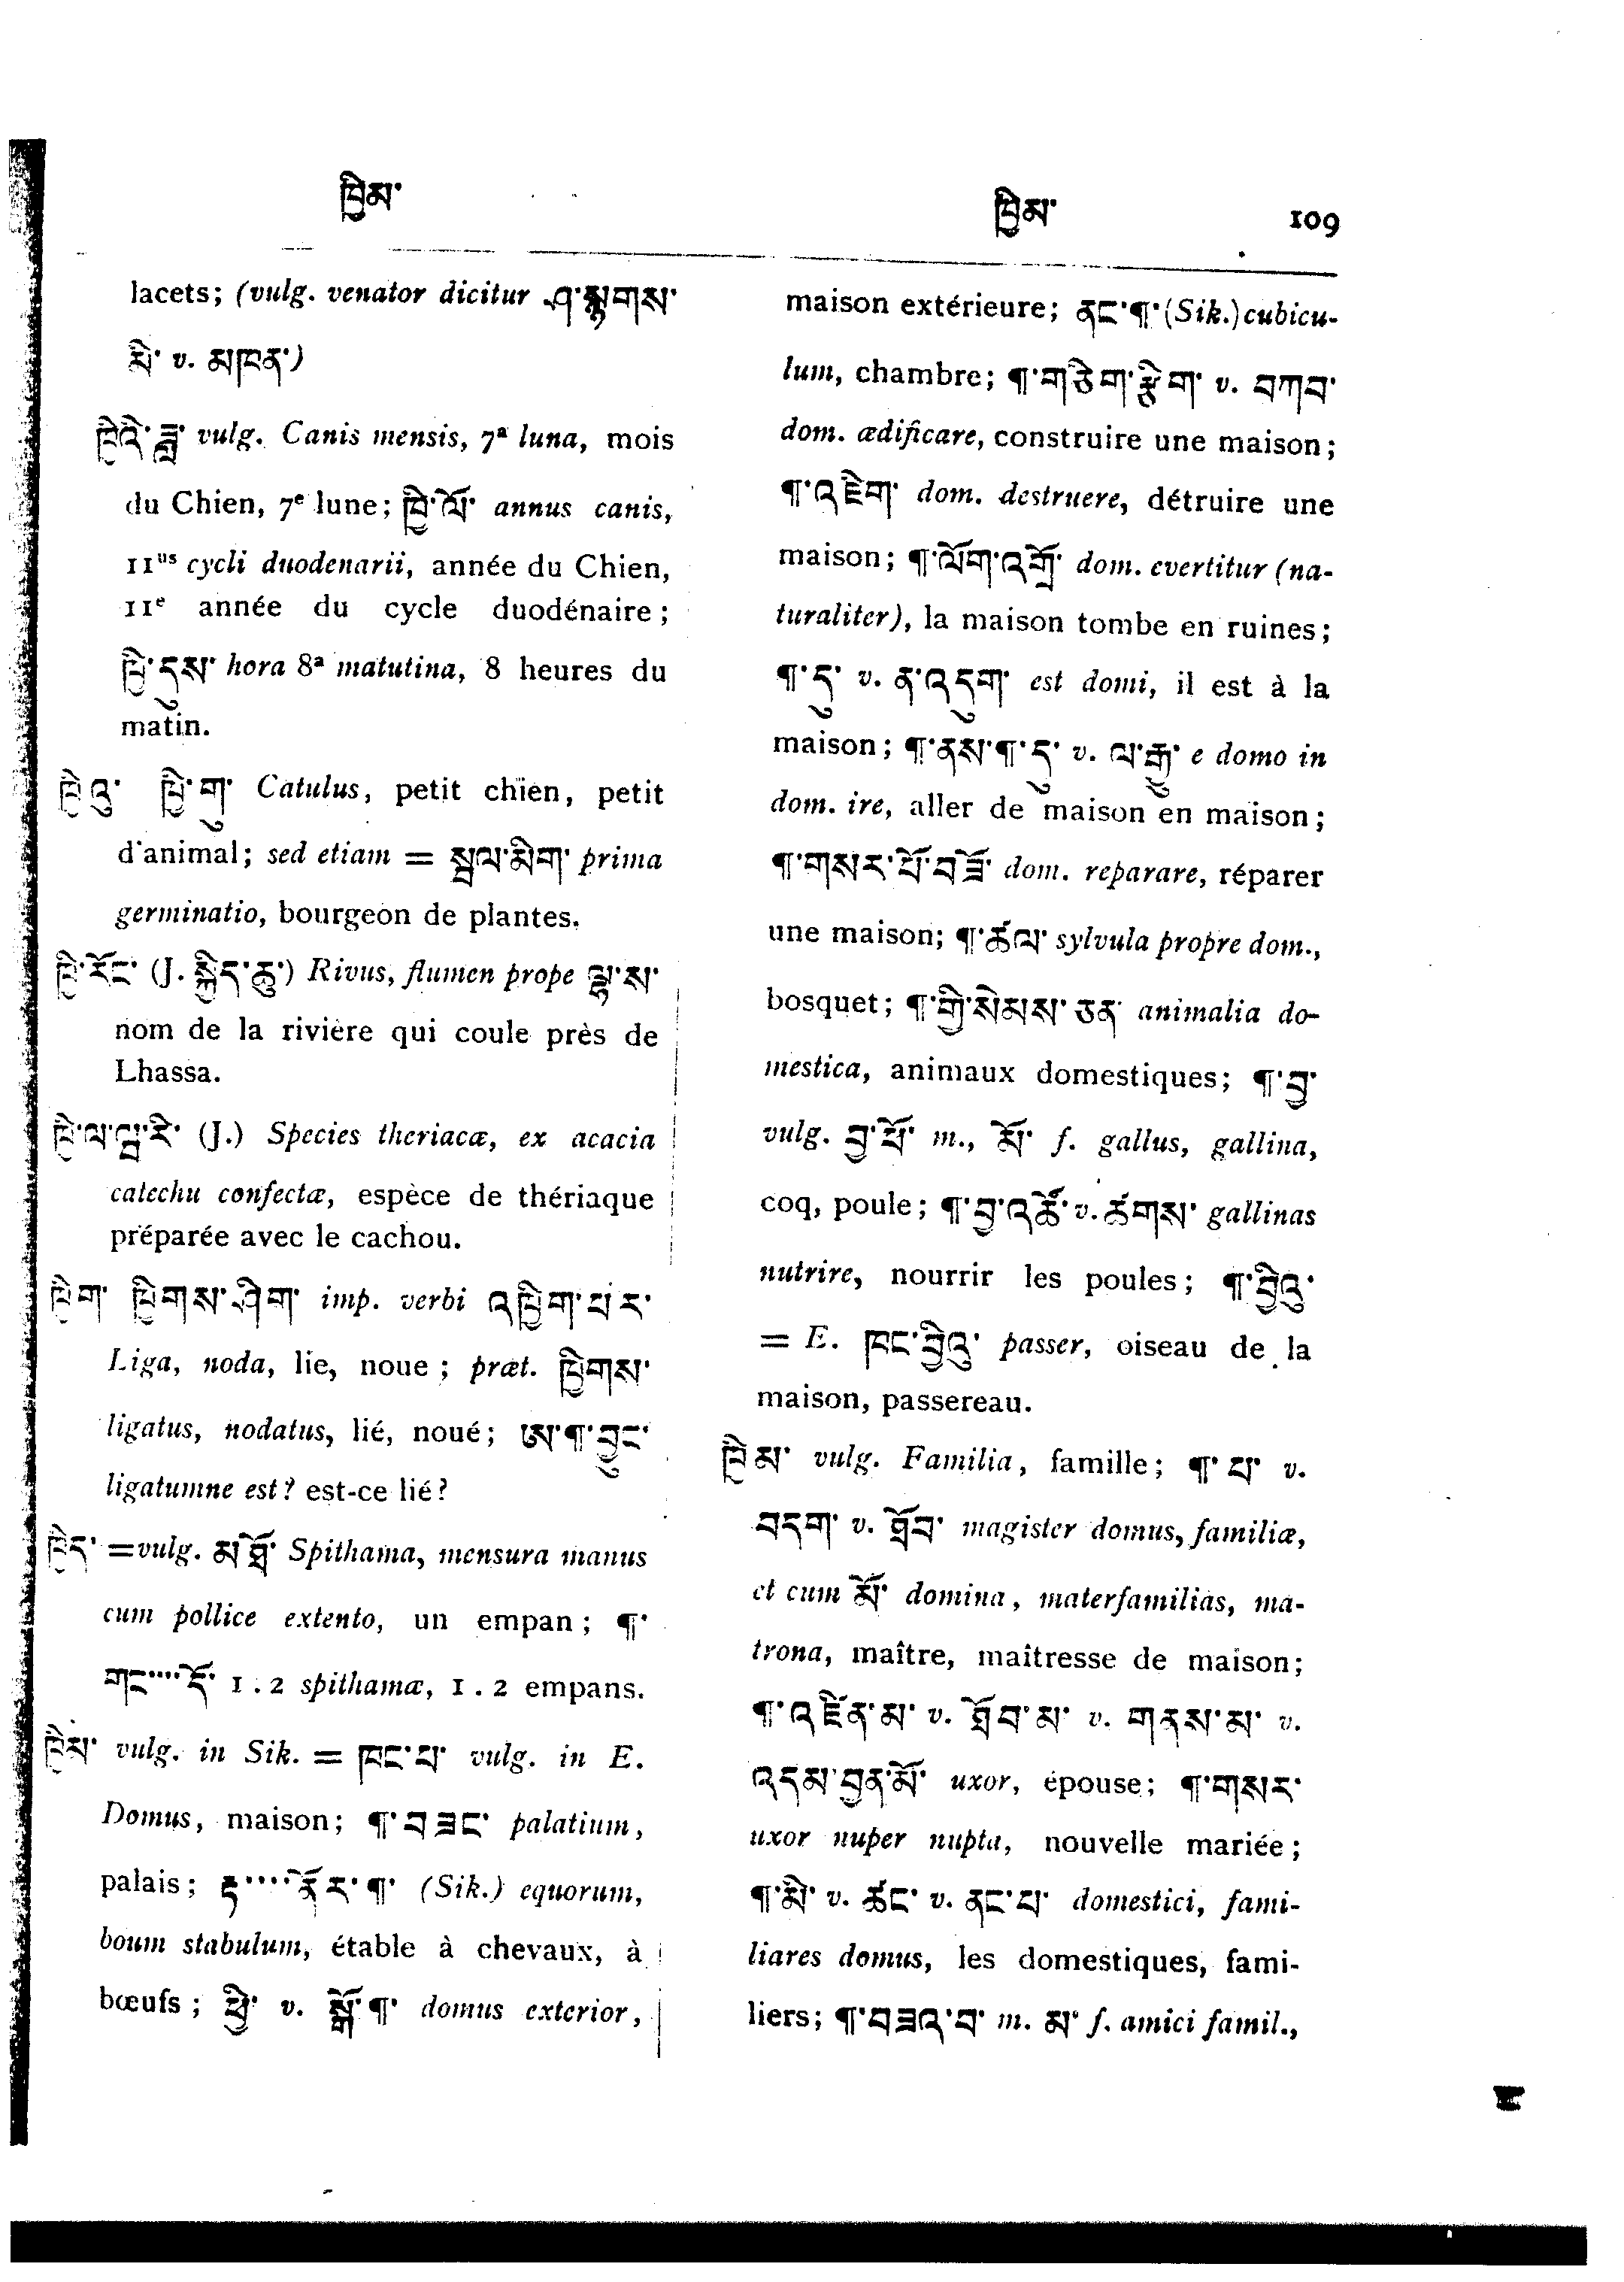 ཁྱིམ་
ཁྱིམ་ 109
lacets; (vulg. venator dicitur ཤ་སྙགས་
མི་ v. མཁན་)
ཁྱིའི་ཟླ་ vulg. Canis mensis, 7ª luna, mois
du Chien, 7ᵉ lune; ཁྱི་ལོ་ annus canis,
11ᵘˢ cycli duodenarii, année du Chien,
11ᵉ année du cycle duodénaire;
ཁྱི་དུས་ hora 8ª matutina, 8 heures du
matin.
ཁྱིའུ་ ཁྱི་གུ་ Catulus, petit chien, petit
d'animal; sed etiam = སྦལ་མིག་ prima
germinatio, bourgeon de plantes.
ཁྱི་རོང་ (J. སྐྱིད་ཆུ་) Rivus, flumen prope ལྷ་ས་
nom de la rivière qui coule près de
Lhassa.
ཁྱི་ལ་ཝ་རི་ (J.) Species theriacæ, ex acacia
catechu confectæ, espèce de thériaque
préparée avec le cachou.
ཁྱིག་ ཁྱིགས་ཤིག་ imp. verbi འཁྱིག་པར་
Liga, noda, lie, noue; præt. ཁྱིགས་
ligatus, nodatus, lié, noué; ཨ་¶་བྱུང་
ligatumne est? est-ce lié?
ཁྱིད་ =vulg. མཐོ་ Spithama, mensura manus
cum pollice extento, un empan; ¶་
གང་....དོ་ 1.2 spithamæ, 1.2 empans.
ཁྱིམ་ vulg. in Sik. = ཁང་པ་ vulg. in E.
Domus, maison; ¶་བཟང་ palatium,
palais; རྟ་....ནོར་¶་ (Sik.) equorum,
boum stabulum, étable à chevaux, à
bœufs; ཕྱི་ v. སྒོ་¶་ domus exterior,
maison extérieure; ནང་¶་(Sik.) cubicu-
lum, chambre; ¶་གཅིག་རྩིག་ v. བཀབ་
dom. ædificare, construire une maison;
¶་འཇིག་ dom. destruere, détruire une
maison; ¶་ལོག་འགྲོ་ dom. evertitur (na-
turaliter), la maison tombe en ruines;
¶་དུ་ v. ན་འདུག་ est domi, il est à la
maison; ¶་ནས་¶་དུ་ v. ལ་རྒྱུ་ e domo in
dom. ire, aller de maison en maison;
¶་གསར་པོ་བཟོ་ dom. reparare, réparer
une maison; ¶་ཚལ་ sylvula propre dom.,
bosquet; ¶་གྱི་སེམས་ཅན་ animalia do-
mestica, animaux domestiques; ¶་བྱ་
vulg. བྱ་ཕོ་ m., མོ་ f. gallus, gallina,
coq, poule; ¶་བྱ་འཚོ་ v. ཚགས་ gallinas
nutrire, nourrir les poules; ¶་བྱིའུ་
= E. ཁང་བྱིའུ་ passer, oiseau de la
maison, passereau.
ཁྱིམ་ vulg. Familia, famille; ¶་པ་ v.
བདག་ v. ཐོབ་ magister domus, familiæ,
et cum མོ་ domina, materfamilias, ma-
trona, maître, maîtresse de maison;
¶་འཛིན་མ་ v. ཐོབ་མ་ v. གནས་མ་ v.
འདམ་བྱན་མོ་ uxor, épouse; ¶་གསར་
uxor nuper nupta, nouvelle mariée;
¶་མི་ v. ཚང་ v. ནང་པ་ domestici, fami-
liares domus, les domestiques, fami-
liers; ¶་བཟའ་བ་ m. མ་ f. amici famil.,